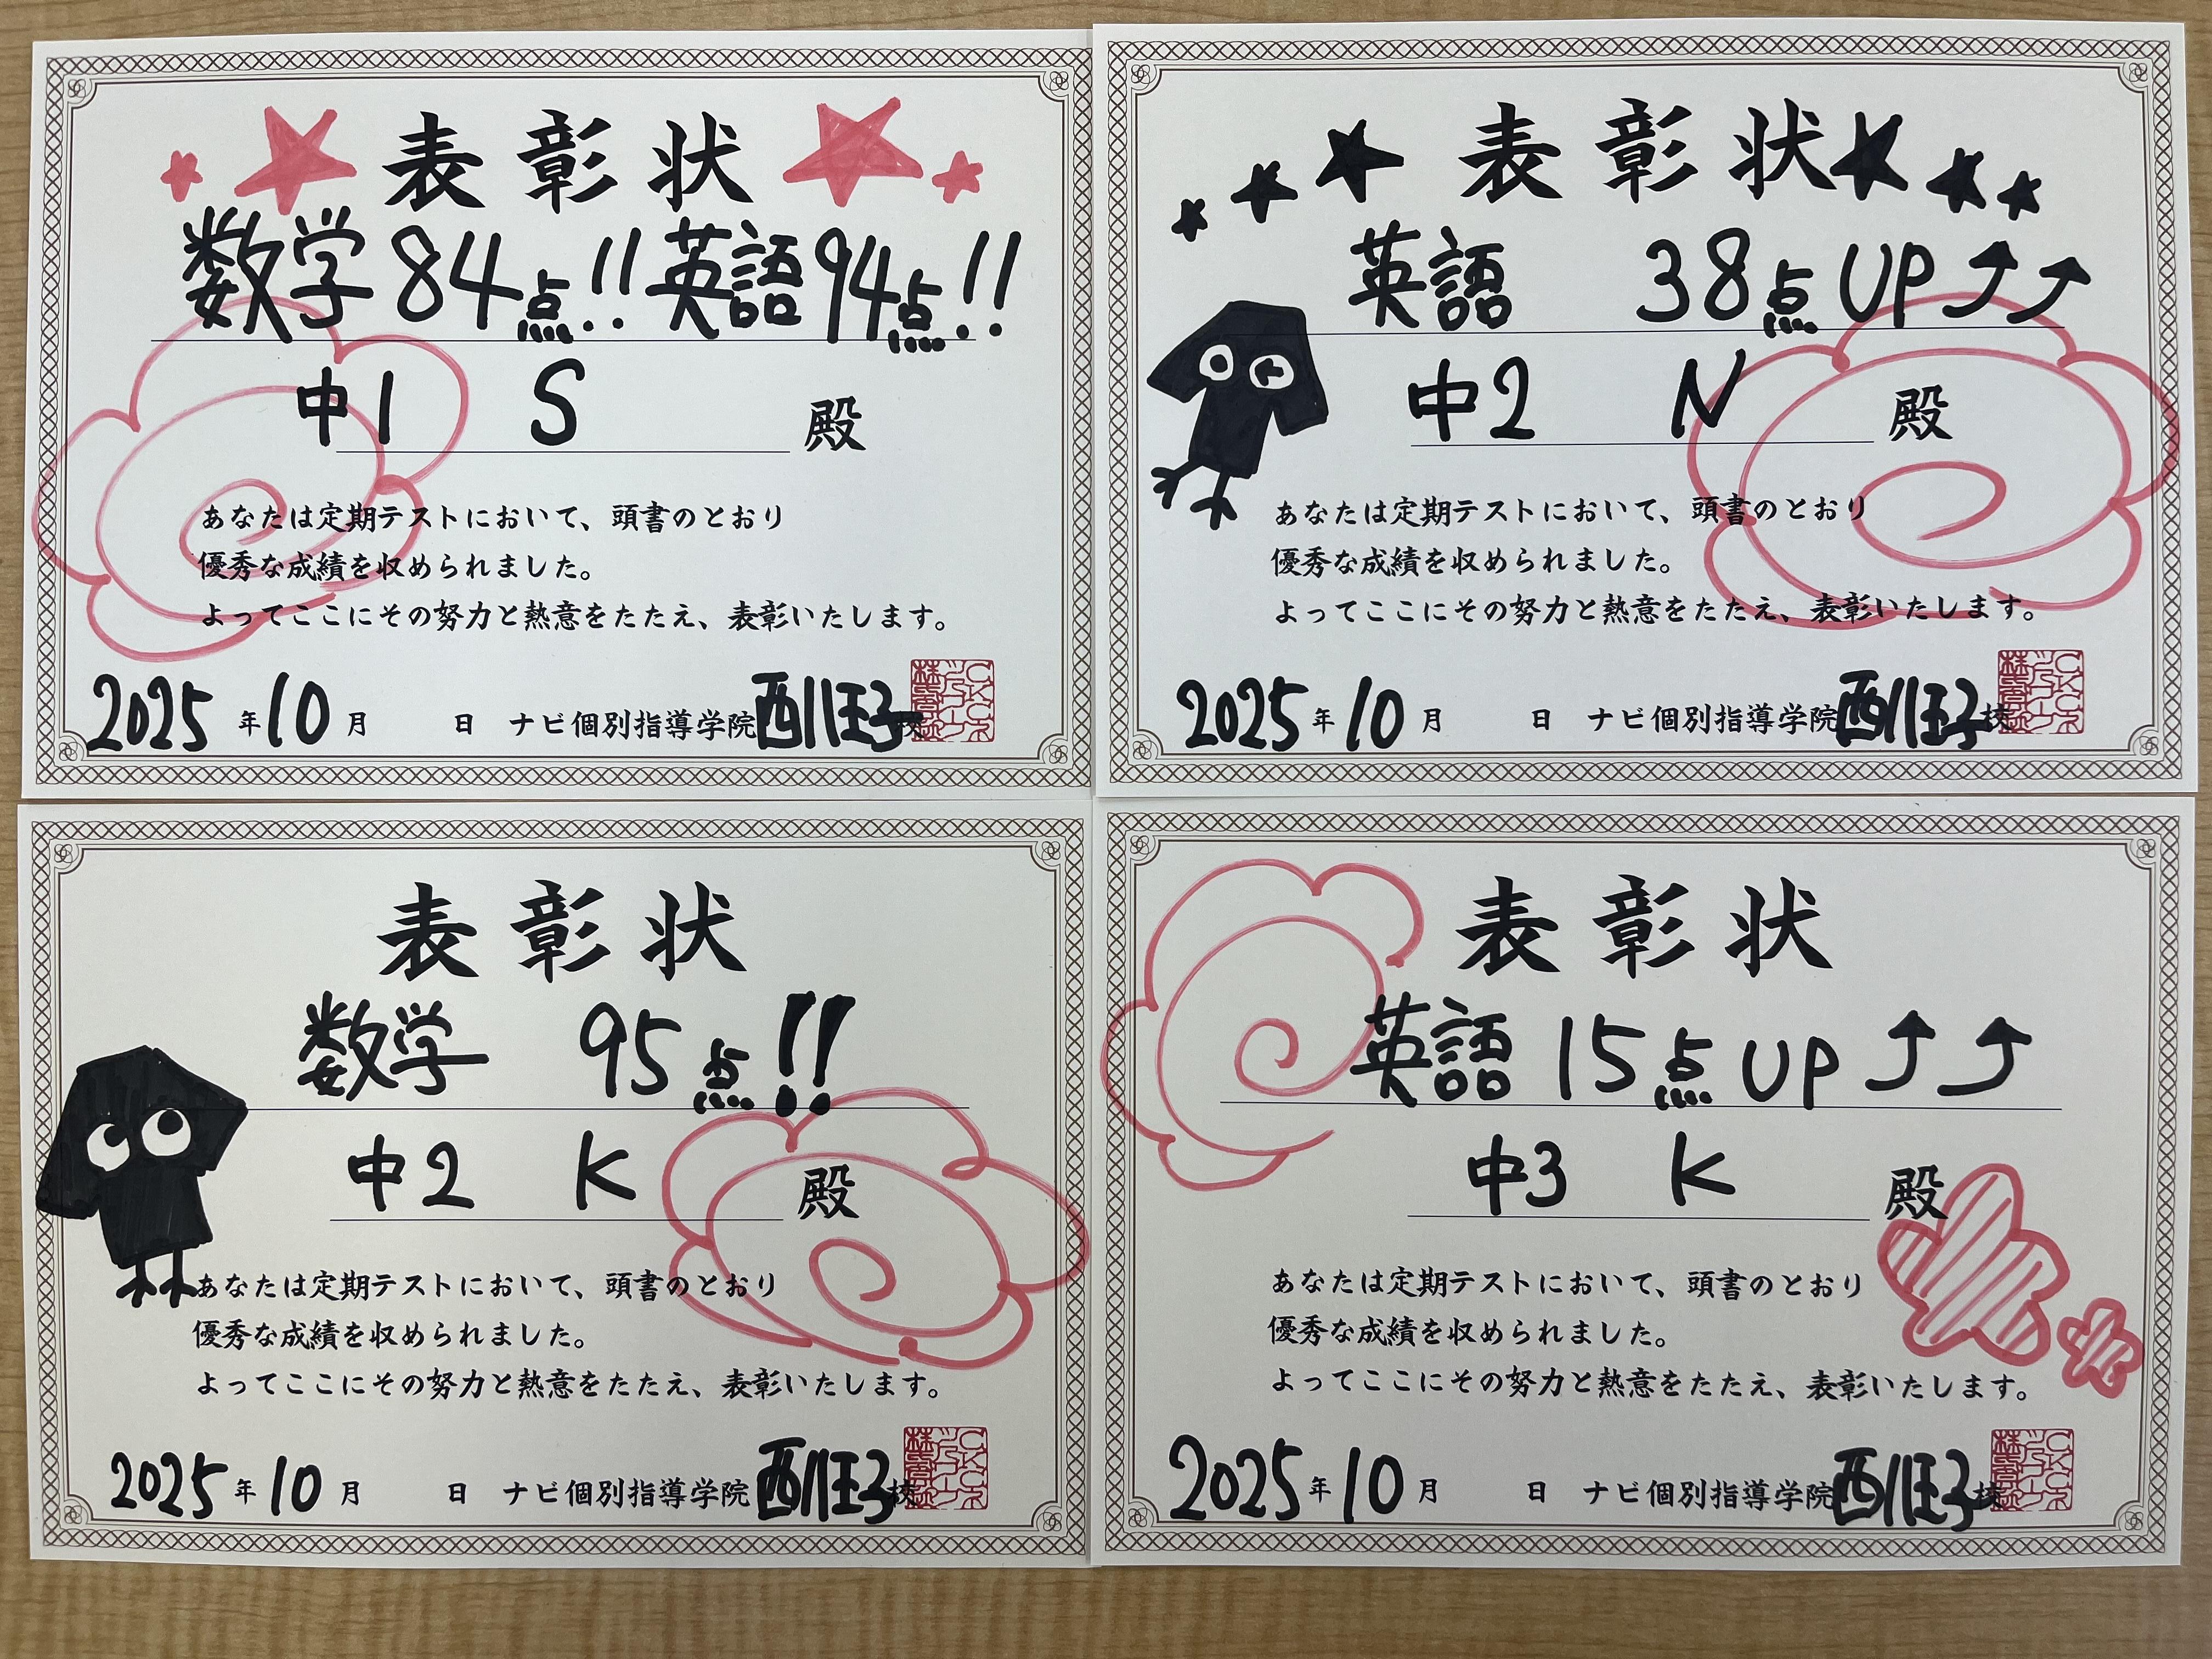 表彰状
数学84点!!英語94点!!
中1 S 殿
あなたは定期テストにおいて、頭書のとおり
優秀な成績を収められました。
よってここにその努力と熱意をたたえ、表彰いたします。
2025年10月 日 ナビ個別指導学院西八王子校
表彰状
英語 38点UP⤴⤴
中2 N 殿
あなたは定期テストにおいて、頭書のとおり
優秀な成績を収められました。
よってここにその努力と熱意をたたえ、表彰いたします。
2025年10月 日 ナビ個別指導学院西八王子校
表彰状
数学 95点!!
中2 K 殿
あなたは定期テストにおいて、頭書のとおり
優秀な成績を収められました。
よってここにその努力と熱意をたたえ、表彰いたします。
2025年10月 日 ナビ個別指導学院西八王子校
表彰状
英語15点UP⤴⤴
中3 K 殿
あなたは定期テストにおいて、頭書のとおり
優秀な成績を収められました。
よってここにその努力と熱意をたたえ、表彰いたします。
2025年10月 日 ナビ個別指導学院西八王子校